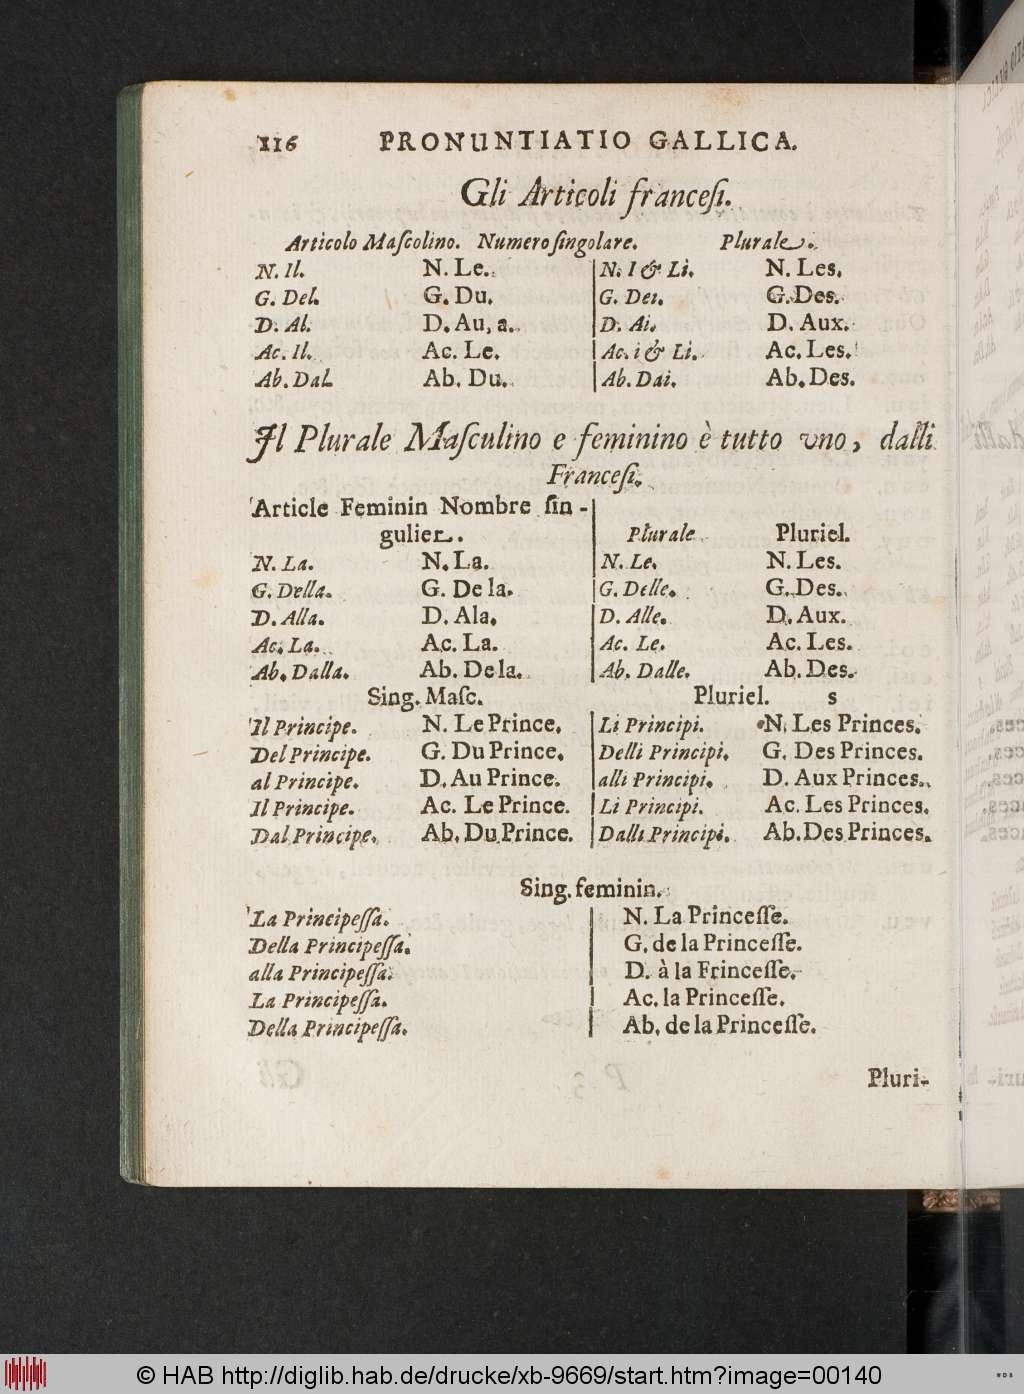 116 PRONUNTIATIO GALLICA.
Gli Articoli franceſi.
Articolo Maſcolino. Numero ſingolare. Plurale.
N. Il. N. Le. N. I & Li. N. Les.
G. Del. G. Du. G. Dei. G. Des.
D. Al. D. Au, a. D. Ai. D. Aux.
Ac. Il. Ac. Le. Ac. i & Li. Ac. Les.
Ab. Dal. Ab. Du. Ab. Dai. Ab. Des.
Il Plurale Maſculino e feminino è tutto vno, dalli
Franceſi.
Article Feminin Nombre ſin-
gulier. Plurale Pluriel.
N. La. N. La. N. Le. N. Les.
G. Della. G. De la. G. Delle. G. Des.
D. Alla. D. Ala. D. Alle. D. Aux.
Ac. La. Ac. La. Ac. Le. Ac. Les.
Ab. Dalla. Ab. De la. Ab. Dalle. Ab. Des.
Sing. Maſc. Pluriel. s
Il Principe. N. Le Prince. Li Principi. N. Les Princes.
Del Principe. G. Du Prince. Delli Principi. G. Des Princes.
al Principe. D. Au Prince. alli Principi. D. Aux Princes.
Il Principe. Ac. Le Prince. Li Principi. Ac. Les Princes.
Dal Principe. Ab. Du Prince. Dalli Principi. Ab. Des Princes.
Sing. feminin.
La Principeſſa. N. La Princeſſe.
Della Principeſſa. G. de la Princeſſe.
alla Principeſſa. D. à la Frinceſſe.
La Principeſſa. Ac. la Princeſſe.
Della Principeſſa. Ab. de la Princeſſe.
Pluri-
© HAB http://diglib.hab.de/drucke/xb-9669/start.htm?image=00140